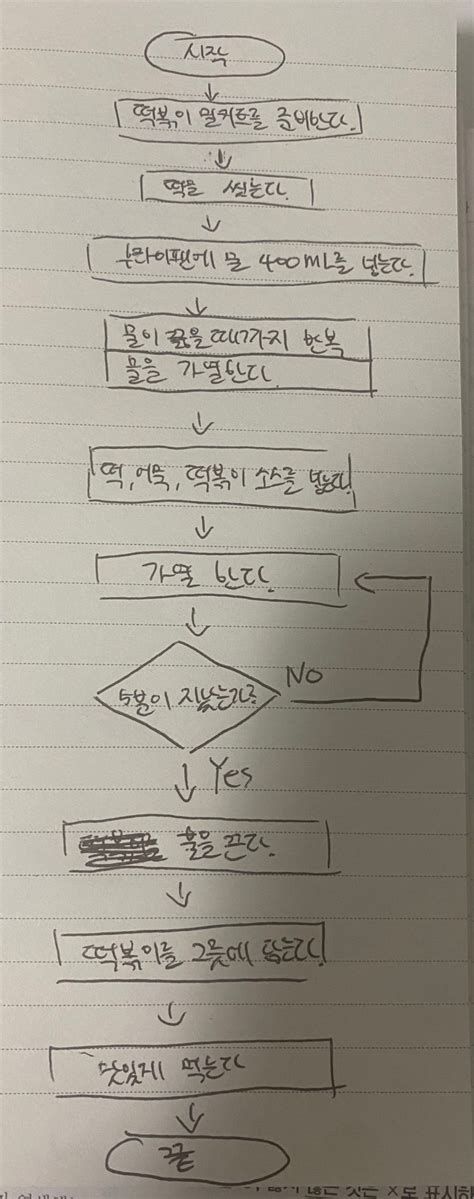 시작
떡볶이 밀키트를 준비한다.
떡을 씻는다.
후라이팬에 물 400mL를 넣는다.
물이 끓을 때까지 반복
물을 가열한다.
떡, 어묵, 떡볶이 소스를 넣는다.
가열 한다.
5분이 지났는가?
No
Yes
불을 끈다.
떡볶이를 그릇에 담는다.
맛있게 먹는다
끝
않은 것은 X로 표시